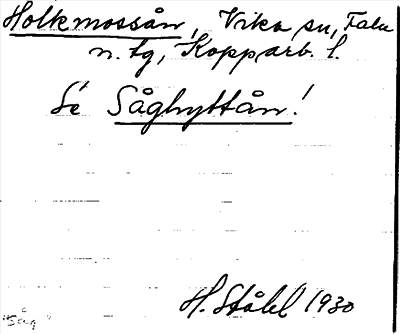 Holkmossån, Vika sn, Falu
n. tg, Kopparb. l.
Se Såghyttån!
H. Ståhl 1930
"Såg"